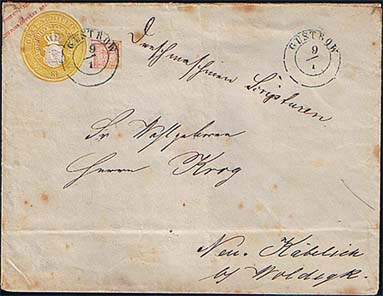 GÜSTROW
9
1
GÜSTROW
9
1
Dreschmaschinen Scripturen.
Sr Wohlgeboren
Herrn Krog
Neu. Käbelich
b/ Woldegk.